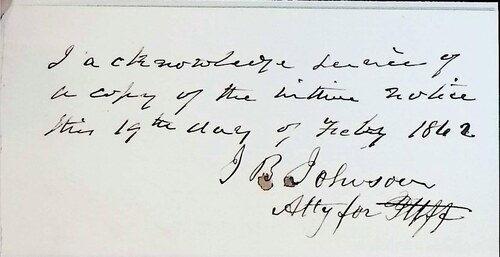 I acknowledge service of
a copy of the within notice
this 19th day of Feby 1862
J B Johnson
Atty for Plff